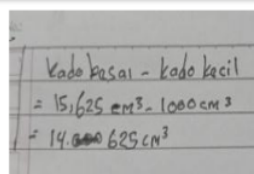 Kado besar - kado kecil
= 15,625 cm³ - 1000 cm³
= 14.625 cm³